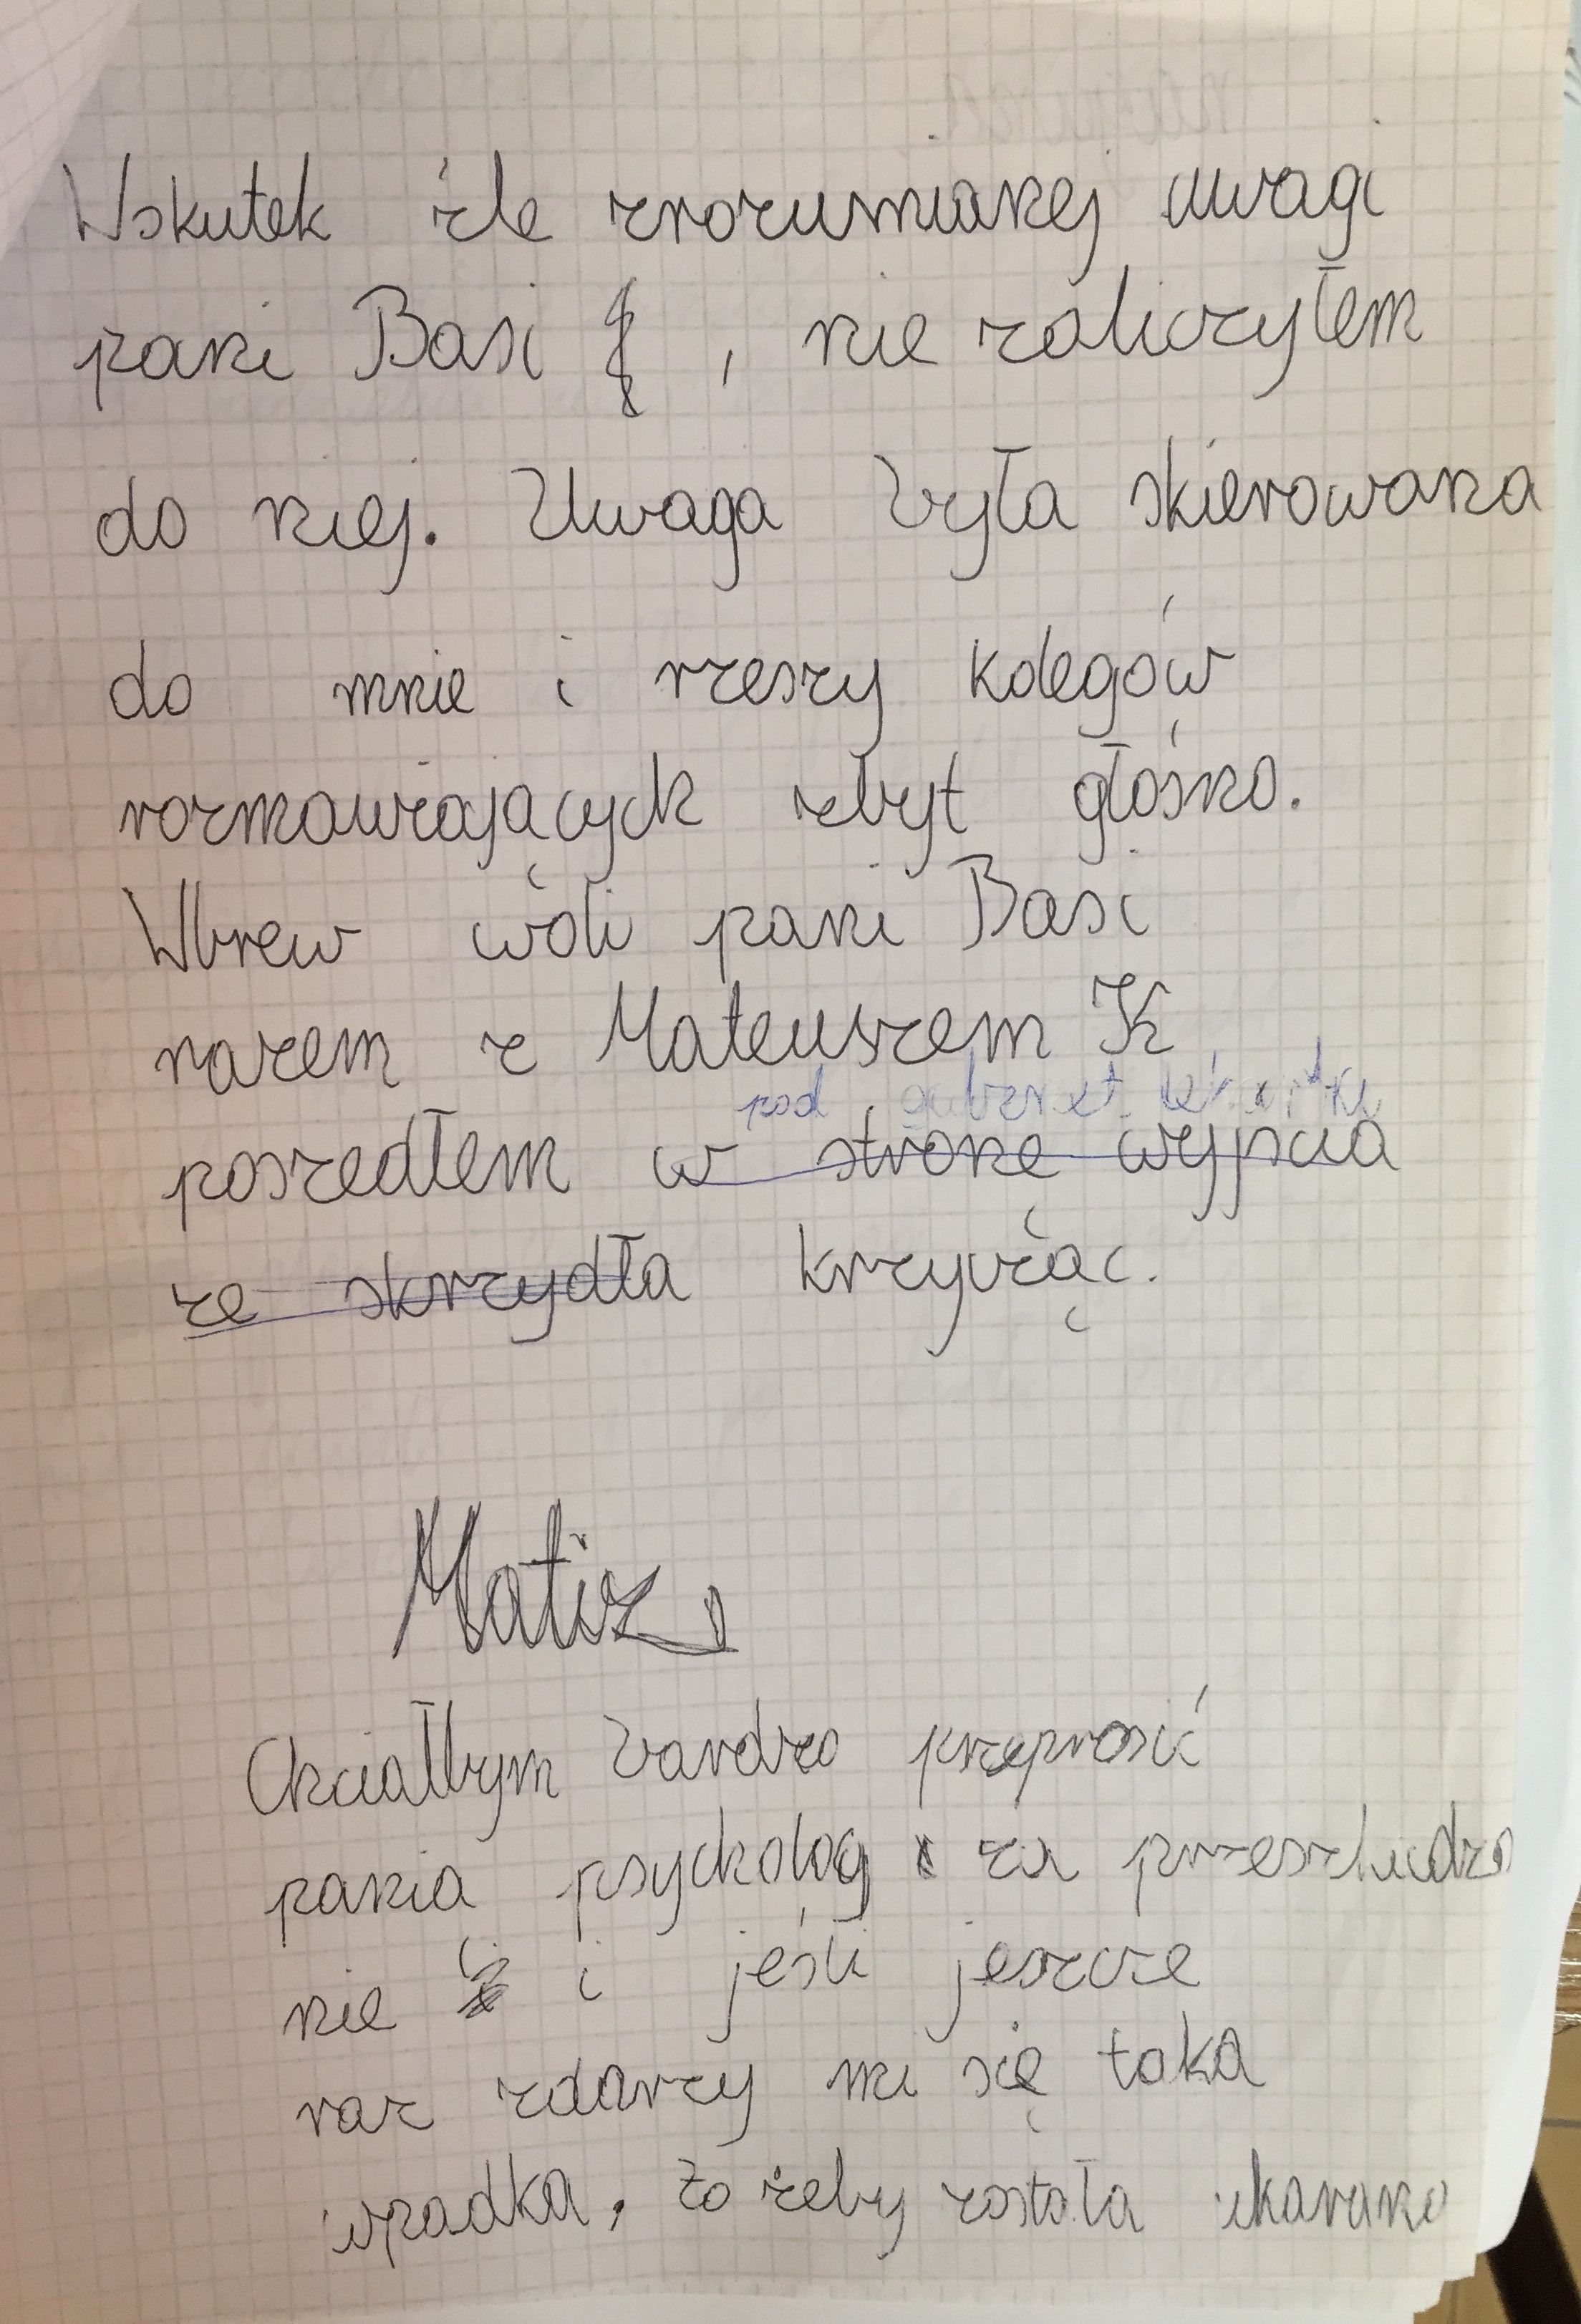 Wskutek źle zrozumianej uwagi
pani Basi , nie zaliczyłem
do niej. Uwaga była skierowana
do mnie i rzeszy kolegów
rozmawiających zbyt głośno.
Wbrew wóli pani Basi
razem z Mateuszem K
pod gabinet
poszedłem w stronę wyjścia
ze skrzydła krzycząc.
Matiz
Chciałbym bardzo przeprosić
pania psycholog za przeszkudza
nie i jeśli jeszcze
raz zdarzy mi się taka
wpadka, to żeby została ukarana